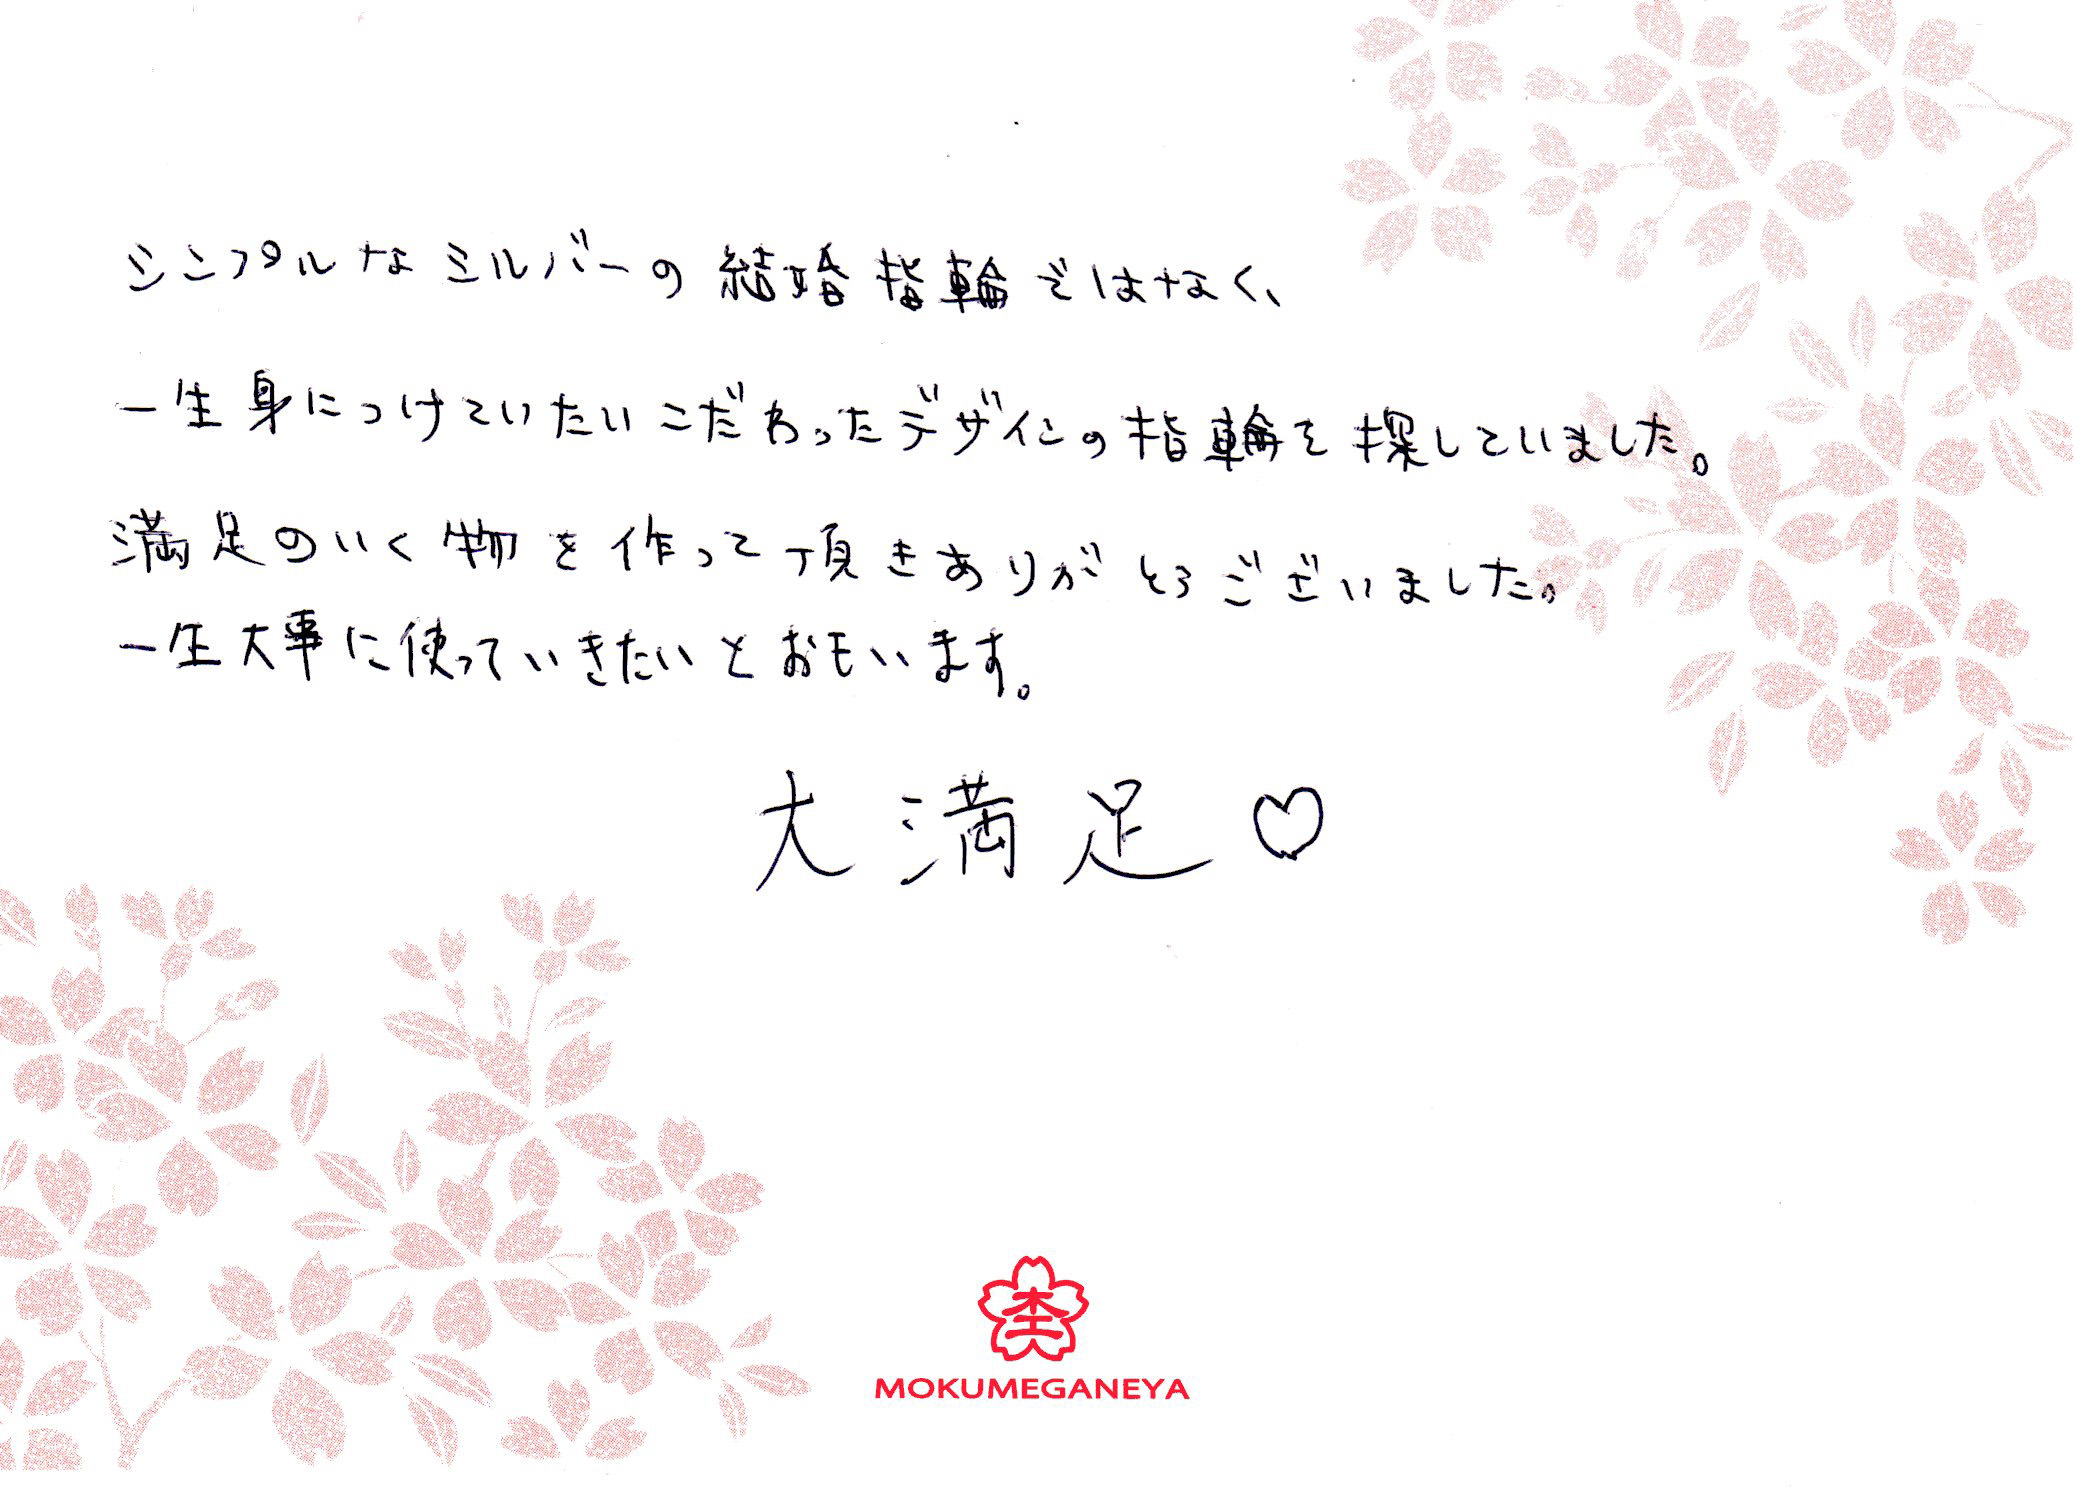 シンプルなシルバーの結婚指輪ではなく、
一生身につけていたいこだわったデザインの指輪を探していました。
満足のいく物を作って頂きありがとうございました。
一生大事に使っていきたいとおもいます。
大満足♡
MOKUMEGANEYA